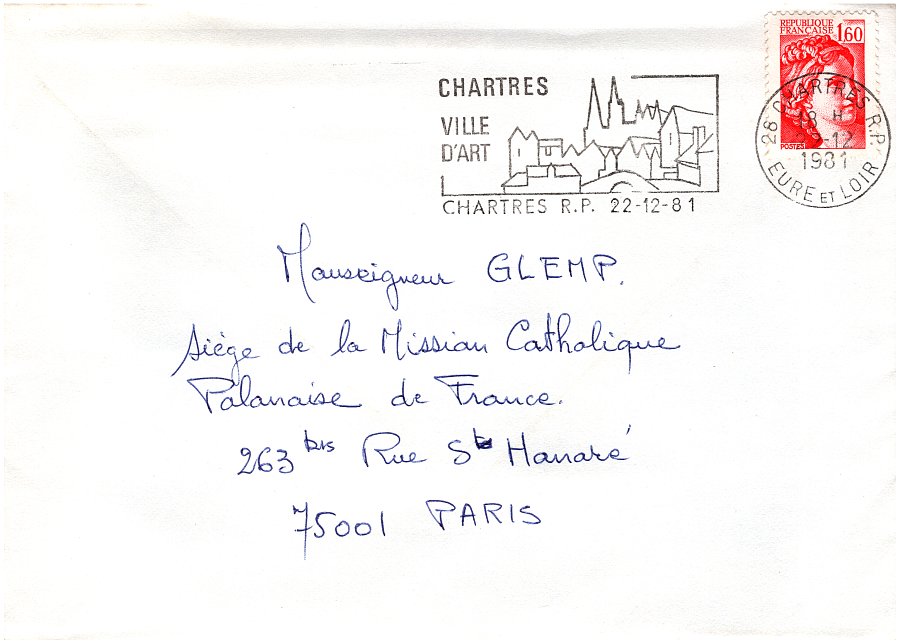 REPUBLIQUE
FRANÇAISE 1,60
POSTES
CHARTRES
VILLE
D'ART
CHARTRES R.P. 22-12-81
28 CHARTRES R.P.
18 H
-12
1981
EURE ET LOIR
Monseigneur GLEMP.
Siège de la Mission Catholique
Polonaise de France.
263 bis Rue St Honoré
75001 PARIS